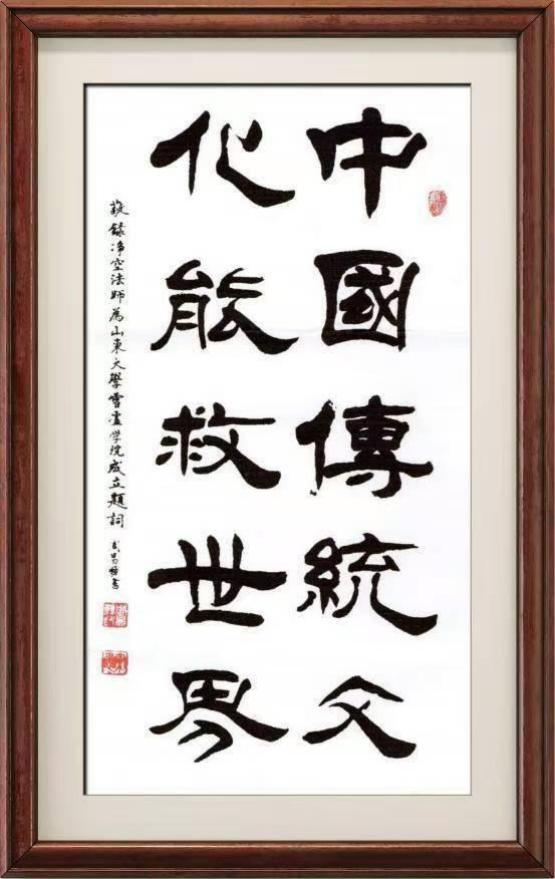 中國傳統文
化能救世界
敬錄淨空法師為山東大學雪廬学院成立題詞